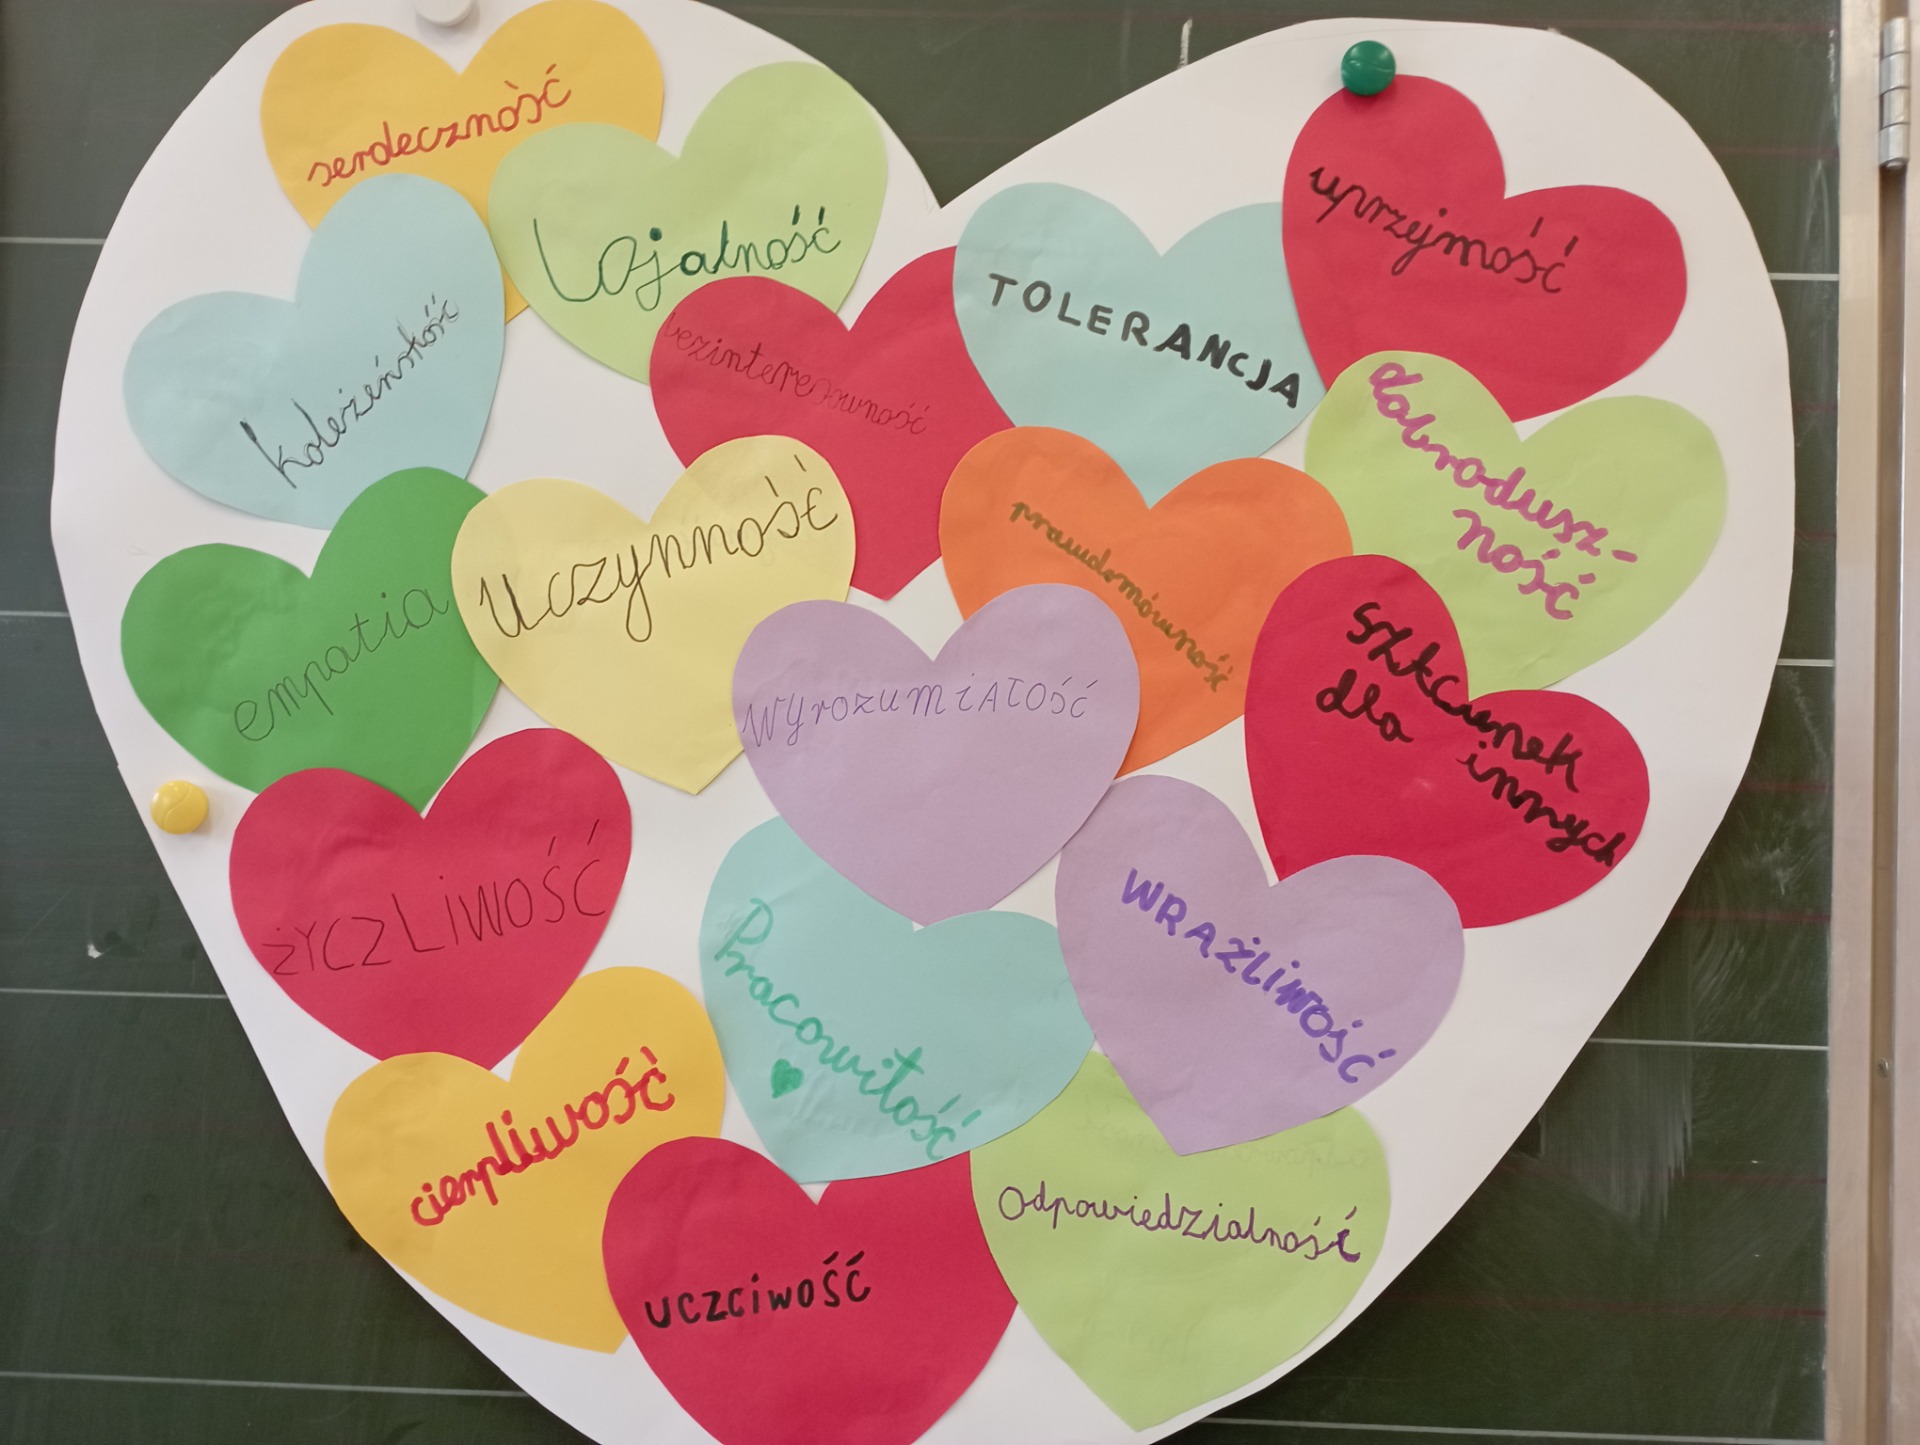 serdeczność
Lojalność
uprzejmość
TOLERANCJA
koleżeńskość
bezinteresowność
dobrodusz-
ność
Uczynność
prawdomówność
empatia
Szacunek
dla innych
WYrozumiAłość
życzLiwość
WRAŻLiWOŚĆ
Pracowitość
cierpliwość
Odpowiedzialność
uczciwość